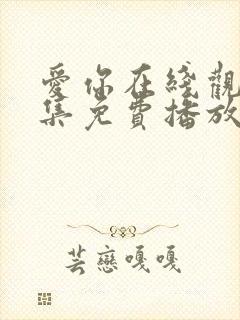 愛你在綫觀
集免費播放
芸戀嘎嘎